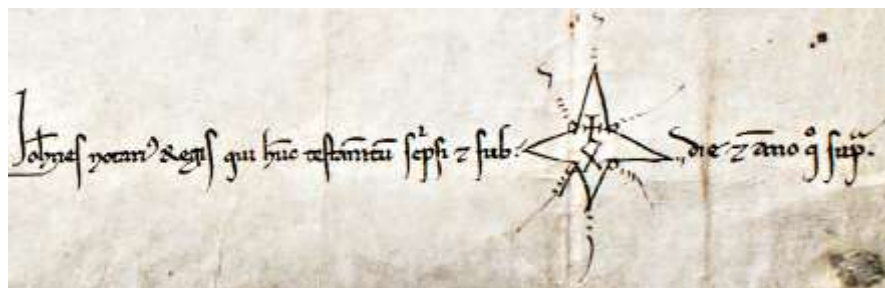 Joh̄nes notari᾽ Regis qui hūc testam̄tū sc̾psi ⁊ sub die ⁊ āno qͦ sup̄ᵃ.